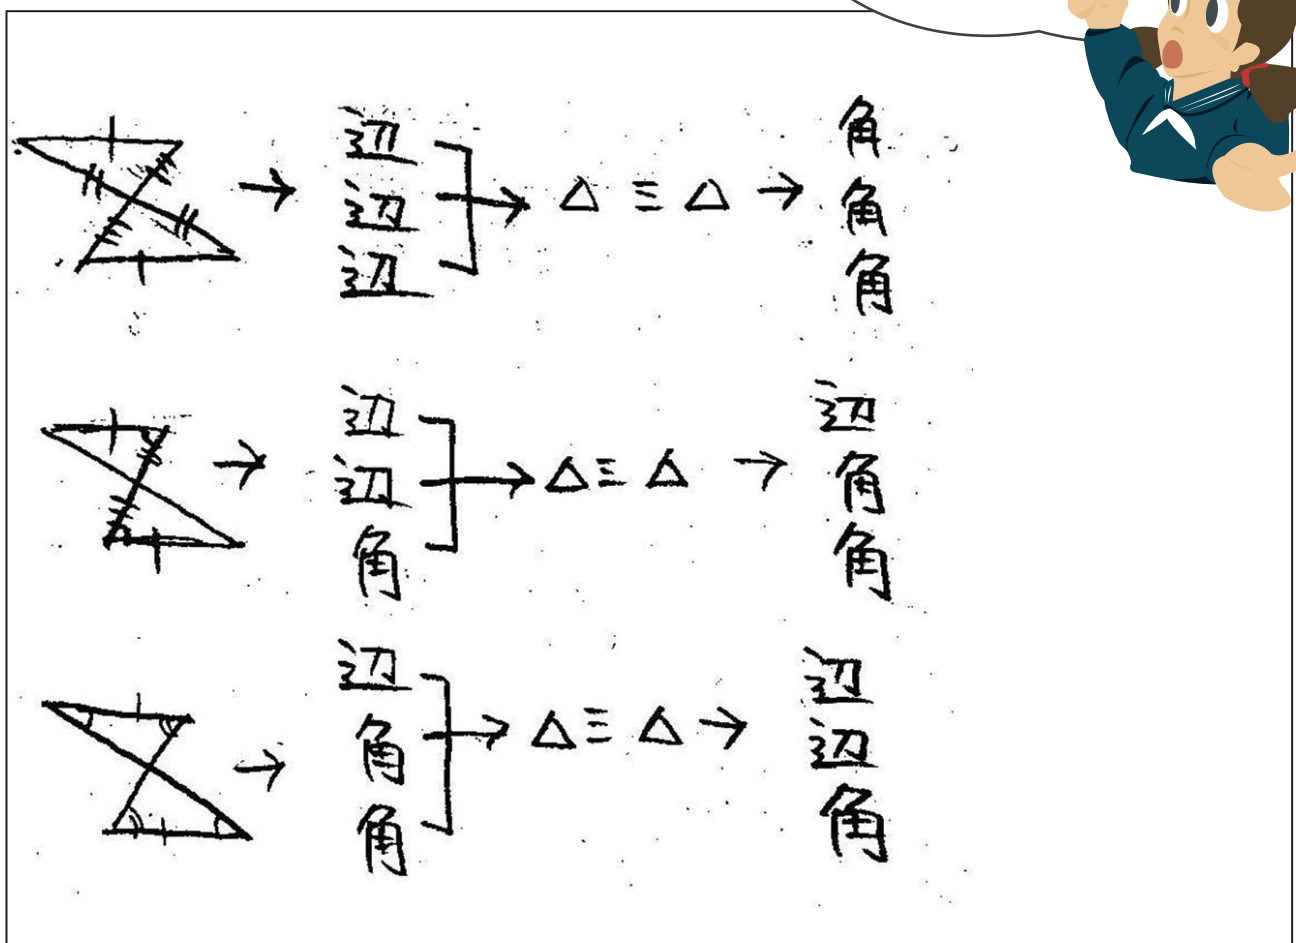 辺
辺
辺
→ △ ≡ △ →
角
角
角
辺
辺
角
→ △ ≡ △ →
辺
角
角
辺
角
角
→ △ ≡ △ →
辺
辺
角